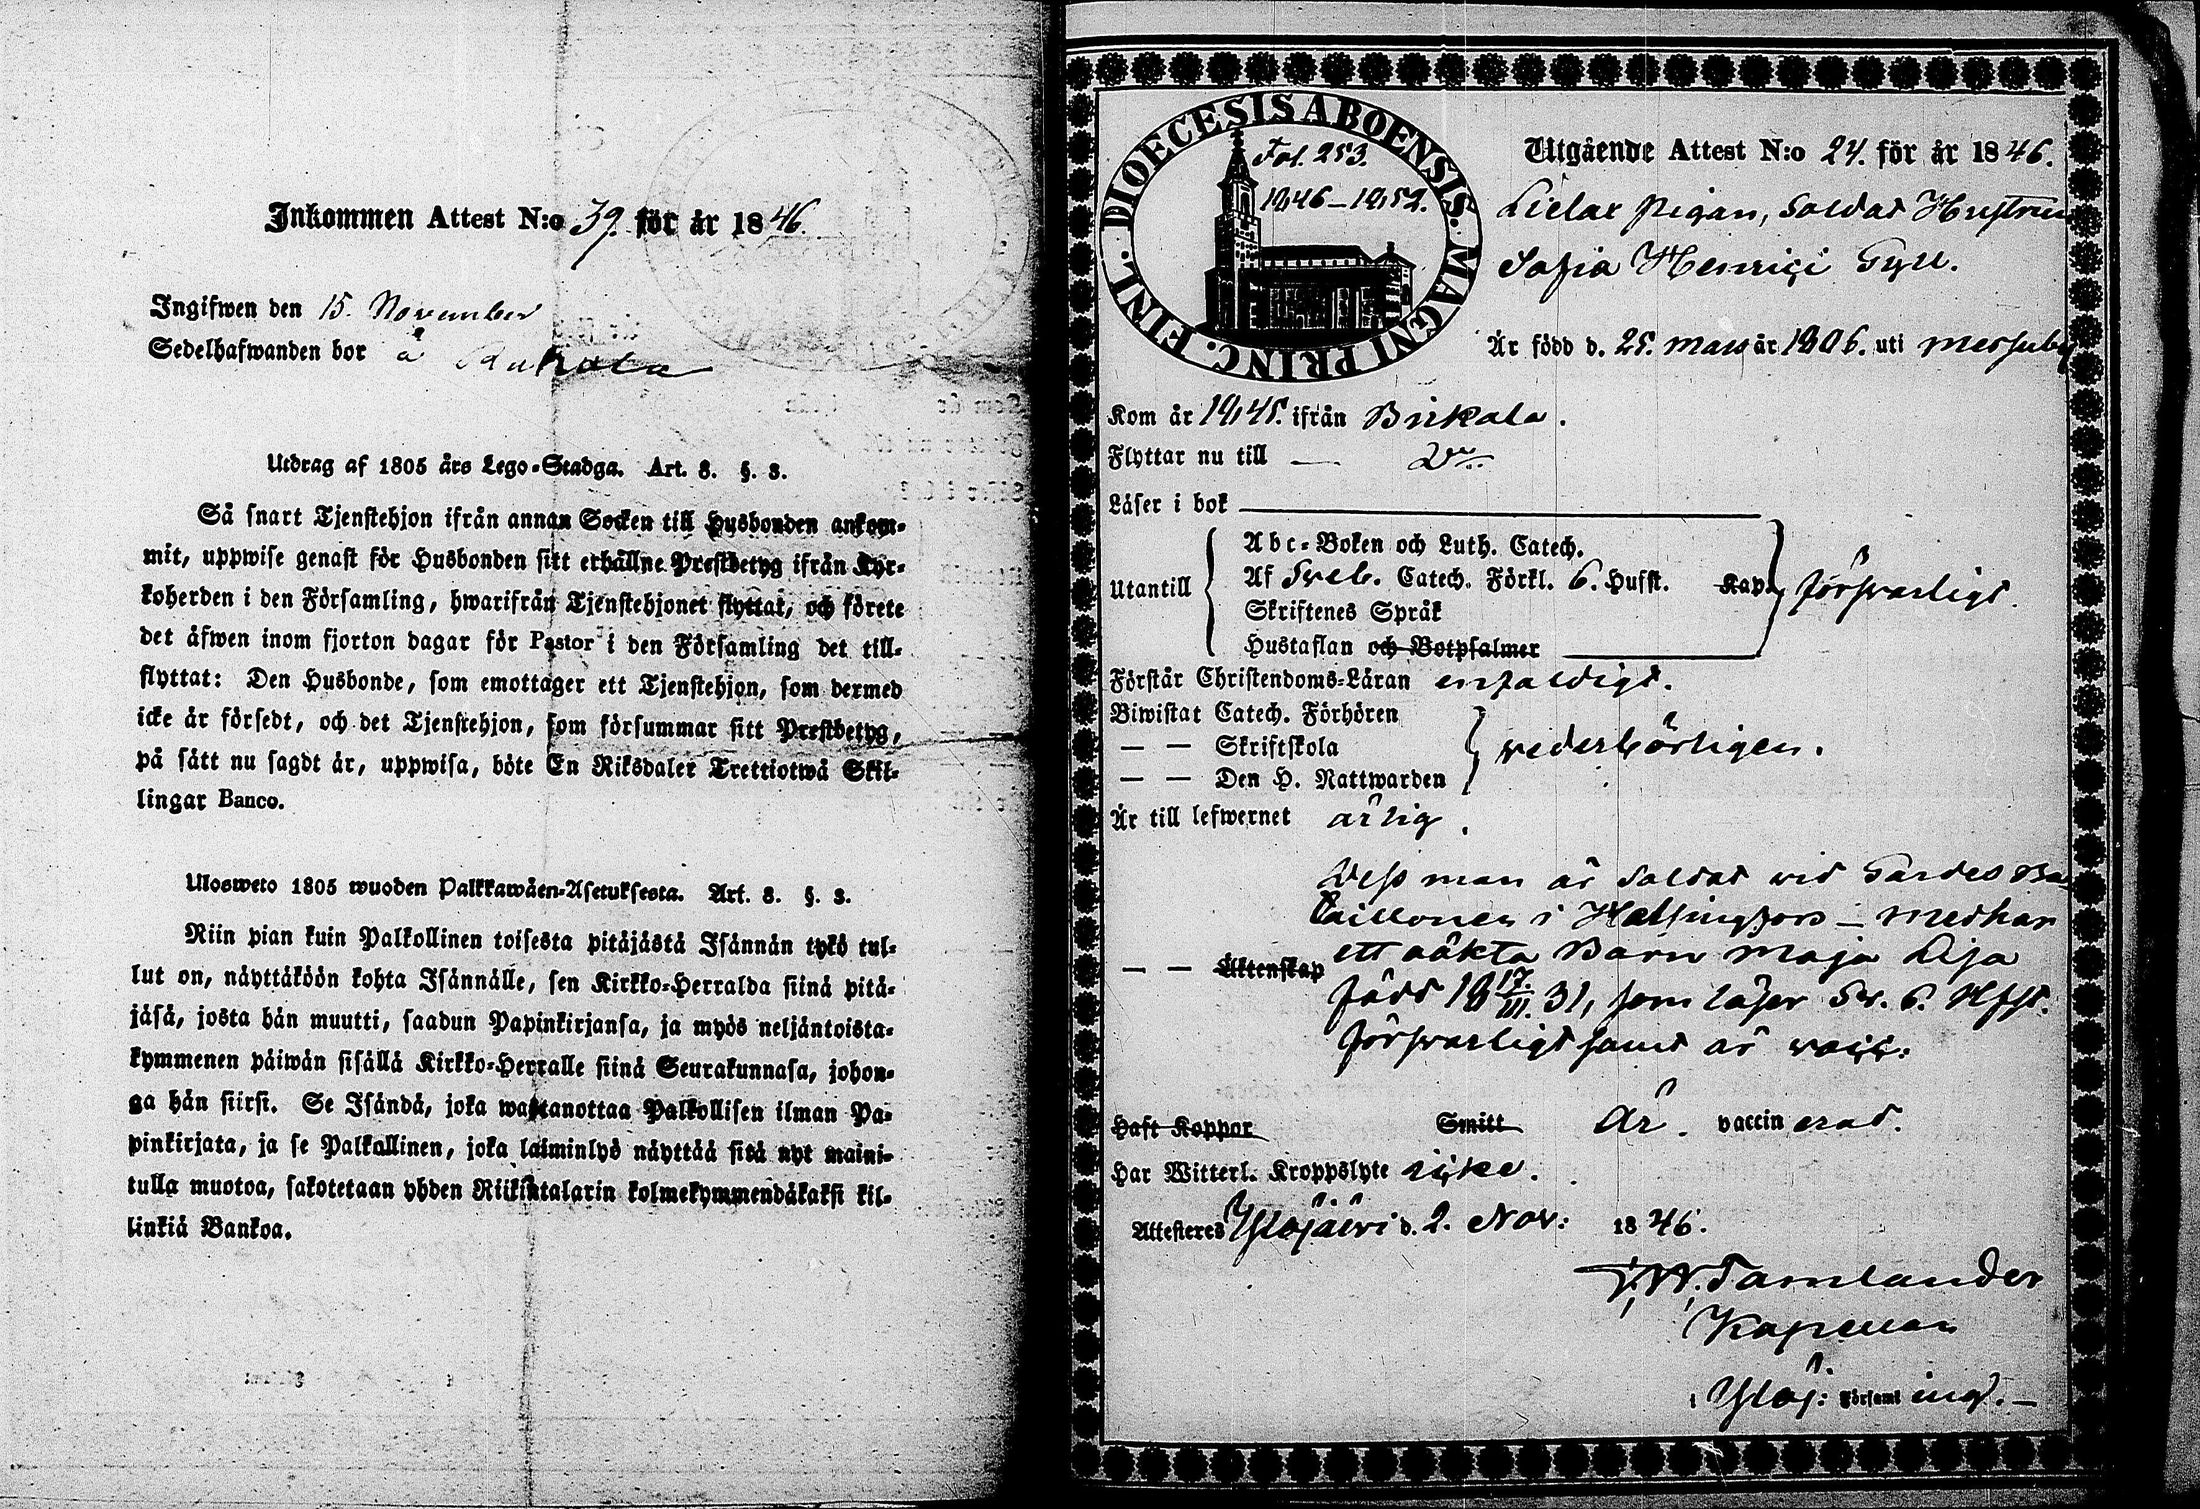 Inkommen Attest N:o 39. för år 1846.
Ingifwen den 15. November
Sedelhafwanden bor å
Utdrag af 1805 års Lego-Stadga. Art. 8. §. 3.
Så snart Tjenstehjon ifrån annan Socken till Husbonden ankom-
mit, uppwise genast för Husbonden sitt erhållne Prestbetyg ifrån Kyr-
koherden i den Församling, hwarifrån Tjenstehjonet flyttat, och förete
det äfwen inom fjorton dagar för Pastor i den Församling det till-
flyttat: Den Husbonde, som emottager ett Tjenstehjon, som dermed
icke är försedt, och det Tjenstehjon, som försummar sitt Prestbetyg,
på sätt nu sagdt är, uppwisa, böte En Riksdaler Trettiotwå Skil-
lingar Banco.
Ulosweto 1805 wuoden Palkkawäen-Asetuksesta. Art. 8. §. 3.
Niin pian kuin Palkollinen toisesta pitäjästä Isännän tykö tul-
lut on, näyttäköön kohta Isännälle, sen Kirkko-Herralda siinä pitä-
jäsä, josta hän muutti, saadun Papinkirjansa, ja myös neljäntoista-
kymmenen päiwän sisällä Kirkko-Herralle siinä Seurakunnasa, johon-
ga hän siirsi. Se Isändä, joka wastanottaa Palkollisen ilman Pa-
pinkirjata, ja se Palkollinen, joka laiminlyö näyttää sitä nyt maini-
tulla muotoa, sakotetaan yhden Riikintalarin kolmekymmendäkaksi kil-
linkiä Bankoa.
DIOECESIS ABOENSIS. MAGNI PRINC. FINL.
Fol. 253.
1846-1852.
Utgående Attest N:o 24. för år 1846.
pigan, Soldat Hustrun
Sofia Henrici Gyll.
Är född d. 25. mars år 1806. uti Messuby
Kom år 1845. ifrån Birkala.
Flyttar nu till —
Läser i bok
Utantill
Abc-Boken och Luth. Catech.
Af Sveb. Catech. Förkl. 6. Hufst. Kap. försvarligt.
Skriftenes Språk
Hustaflan och Botpsalmer
Förstår Christendoms-Läran enfaldigt.
Biwistat Catech. Förhören
— — Skriftskola
— — Den H. Nattwarden
vederbörligen.
Är till lefwernet ärlig.
Dess man är Soldat vid Gardes Ba-
taillonen i Helsingfors – medhar
— — Äktenskap ett oäkta Barn Maja Lisa
född 18 17/III. 31, som läser Sv. 6. Hfst.
försvarligt samt är vacc:
Haft Koppor Smitt Är. vaccinerad.
Har Witterl. Kroppslyte icke.
Attesteres Ylöjärvi d. 2. Nov: 1846.
Tamlander
Kapellan
i Ylöj: Församling. —